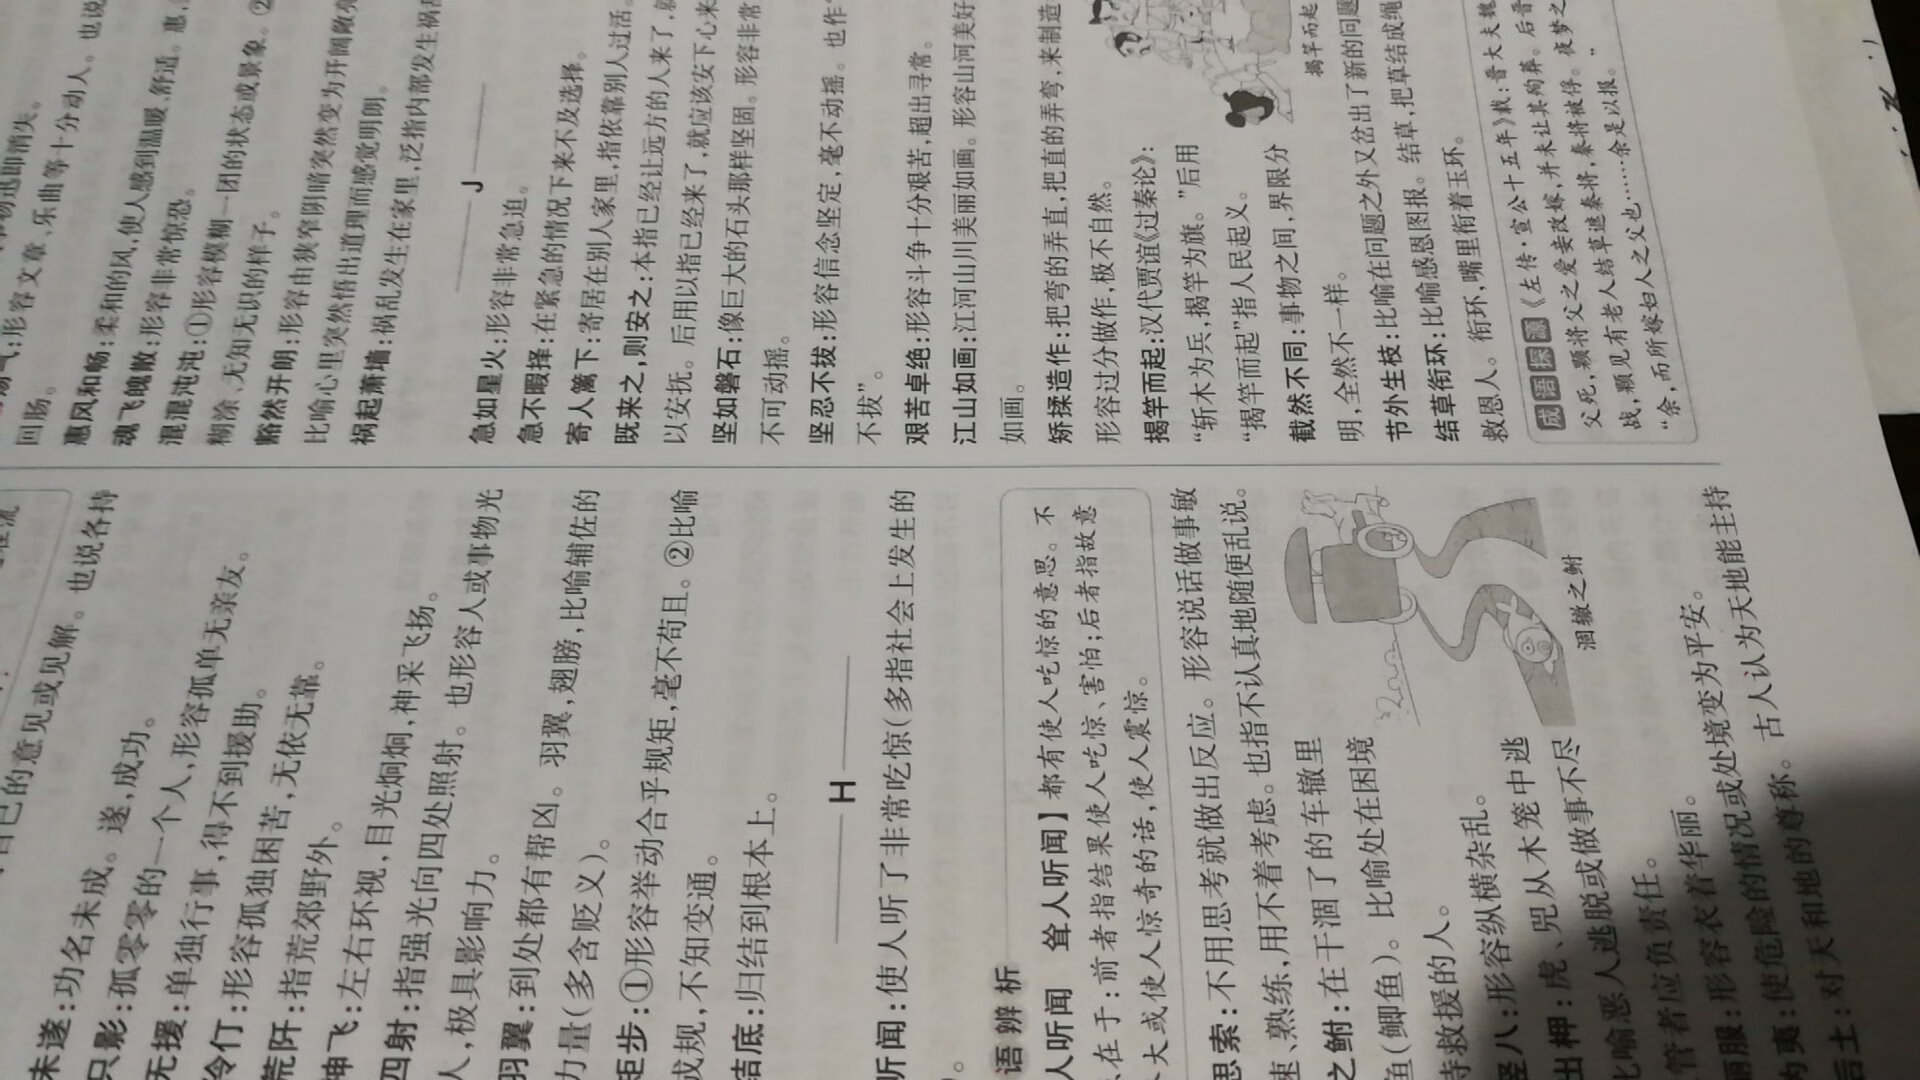 自己的意见或见解。也说各持
未遂:功名未成。遂,成功。
只影:孤零零的一个人,形容孤单无亲友。
无援:单独行事,得不到援助。
伶仃:形容孤独困苦,无依无靠。
荒阡:指荒郊野外。
神飞:左右环视,目光炯炯,神采飞扬。
四射:指强光向四处照射。也形容人或事物光
人,极具影响力。
羽翼:到处都有帮凶。羽翼,翅膀,比喻辅佐的
力量(多含贬义)。
矩步:①形容举动合乎规矩,毫不苟且。②比喻
成规,不知变通。
结底:归结到根本上。
H
听闻:使人听了非常吃惊(多指社会上发生的
)。
语辨析
人听闻 耸人听闻】都有使人吃惊的意思。不
在于:前者指结果使人吃惊、害怕;后者指故意
大或使人惊奇的话,使人震惊。
思索:不用思考就做出反应。形容说话做事敏
速、熟练,用不着考虑。也指不认真地随便乱说。
之鲋:在干涸了的车辙里
鱼(鲫鱼)。比喻处在困境
待救援的人。
涸辙之鲋
竖八:形容纵横杂乱。
出柙:虎、兕从木笼中逃
比喻恶人逃脱或做事不尽
管者应负责任。
丽服:形容衣着华丽。
为夷:使危险的情况或处境变为平安。
后土:对天和地的尊称。古人认为天地能主持
物迅即消失。
气:形容文章、乐曲等十分动人。也说
回肠。
惠风和畅:柔和的风,使人感到温暖、舒适。惠,
魂飞魄散:形容非常惊恐。
混混沌沌:①形容模糊一团的状态或景象。②
糊涂、无知无识的样子。
豁然开朗:形容由狭窄阴暗突然变为开阔敞亮
比喻心里突然悟出道理而感觉明朗。
祸起萧墙:祸乱发生在家里,泛指内部发生祸乱
J
急如星火:形容非常急迫。
急不暇择:在紧急的情况下来不及选择。
寄人篱下:寄居在别人家里,指依靠别人过活。
既来之,则安之:本指已经让远方的人来了,就
以安抚。后用以指已经来了,就应该安下心来
坚如磐石:像巨大的石头那样坚固。形容非常
不可动摇。
坚忍不拔:形容信念坚定,毫不动摇。也作“
不拔”。
艰苦卓绝:形容斗争十分艰苦,超出寻常。
江山如画:江河山川美丽如画。形容山河美好
如画。
矫揉造作:把弯的弄直,把直的弄弯,来制造
形容过分做作,极不自然。
揭竿而起:汉代贾谊《过秦论》:
“斩木为兵,揭竿为旗。”后用
“揭竿而起”指人民起义。
揭竿而起
截然不同:事物之间,界限分
明,全然不一样。
节外生枝:比喻在问题之外又岔出了新的问题
结草衔环:比喻感恩图报。结草,把草结成绳
救恩人。衔环,嘴里衔着玉环。
成语探源《左传·宣公十五年》载:晋大夫魏
父死,颗将父之爱妾改嫁,并未让其殉葬。后晋
战,颗见有老人结草遮秦将,秦将被俘。夜梦之
“余,而所嫁妇人之父也……余是以报。”